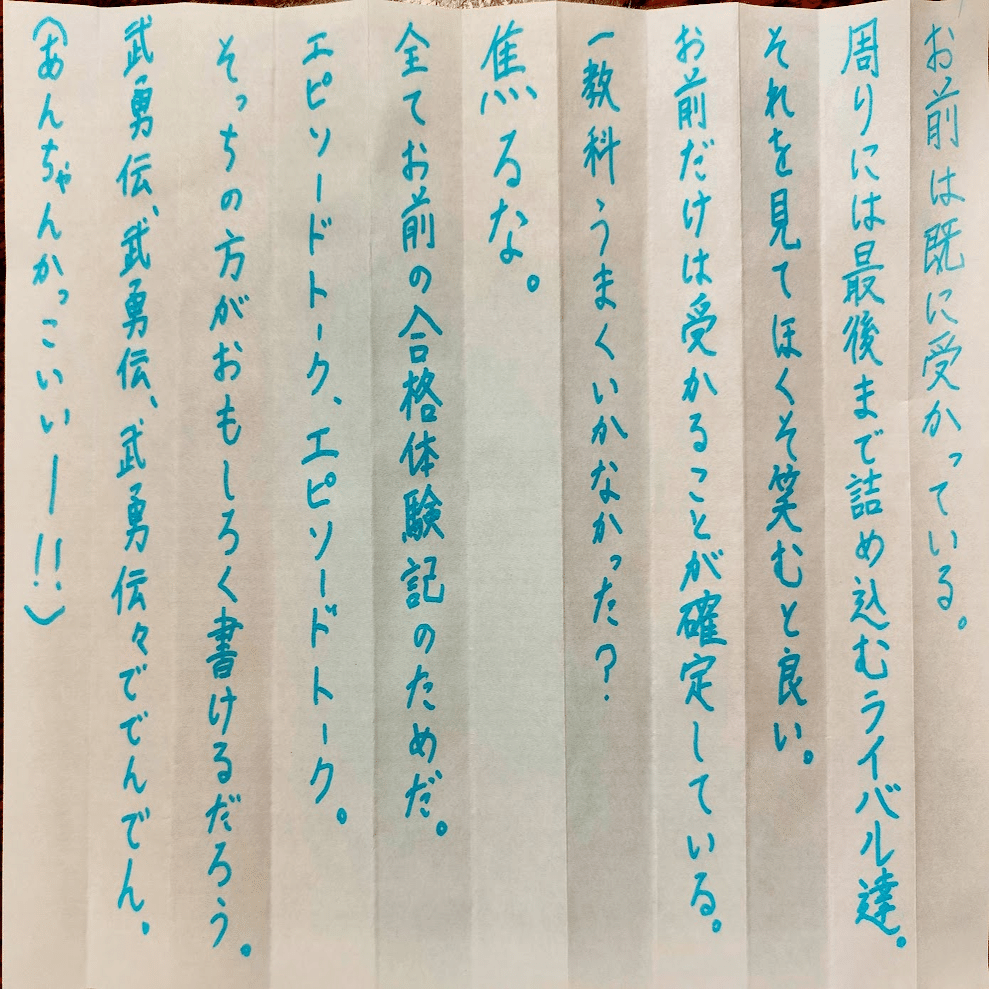 お前は既に受かっている。
周りには最後まで詰め込むライバル達。
それを見てほくそ笑むと良い。
お前だけは受かることが確定している。
一教科うまくいかなかった?
焦るな。
全てお前の合格体験記のためだ。
エピソードトーク、エピソードトーク。
そっちの方がおもしろく書けるだろう。
武勇伝、武勇伝、武勇伝々ででんでん。
(あんちゃんかっこいいー!!)